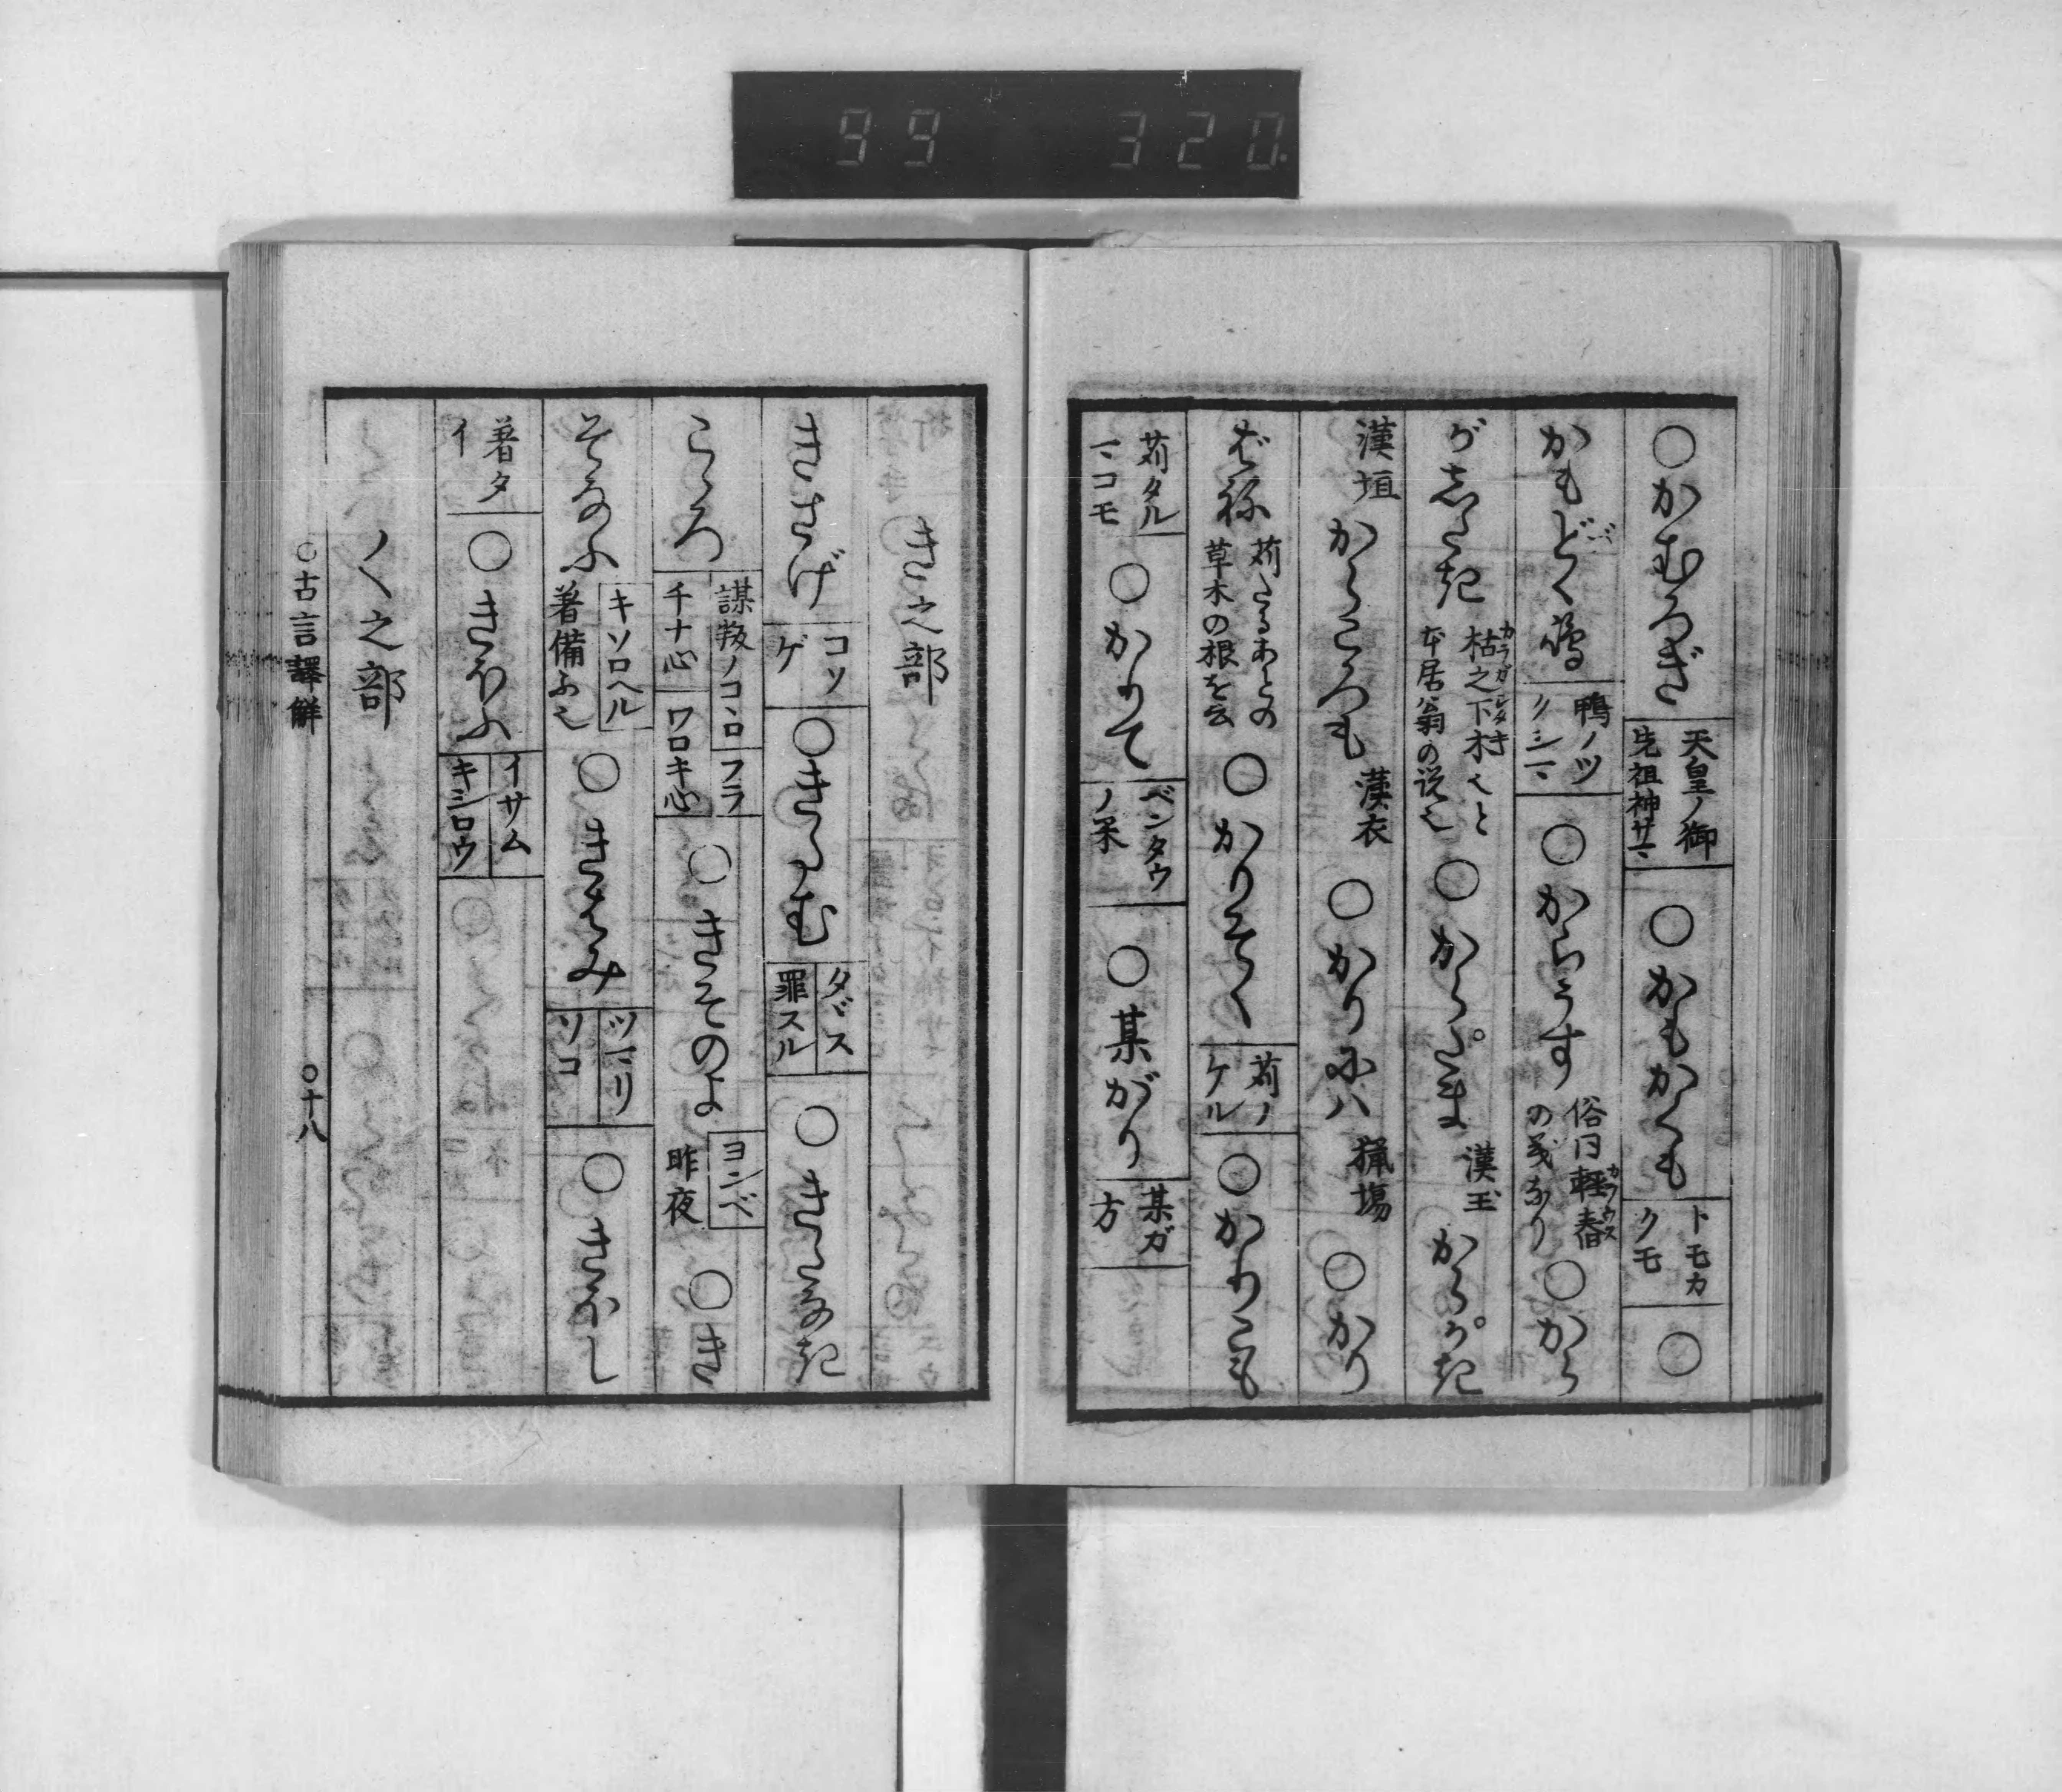 99 320
○かむろぎ 天皇ノ御先祖神サマ ○かもかくも トモカクモ ○
かもどく鴗 鴨ノツクシマ ○からうす 俗曰軽舂の義なり ○から
がしたき 枯之下木と本居翁の説也 ○からたま 漢玉 からがき
漢垣 からころも 漢衣 ○かりには 猟場 ○かり
ばね 苅たるあとの草木の根を云 ○かりそく 苅ノケル ○かりこも
苅タルマコモ ○かりて ベンタウノ米 ○某がり 某ガ方
き之部
きさげ コソゲ ○きたむ タダス 罪スル ○きたなき
こころ 謀叛ノココロ フラチナ心 ワロキ心 ○きそのよ ヨンベ 昨夜 ○き
そなふ キソロヘル 著備ふ也 ○きはみ ツマリ ソコ ○きほし
著タイ ○きほふ イサム キシロウ
く之部
○古言譯解 ○十八